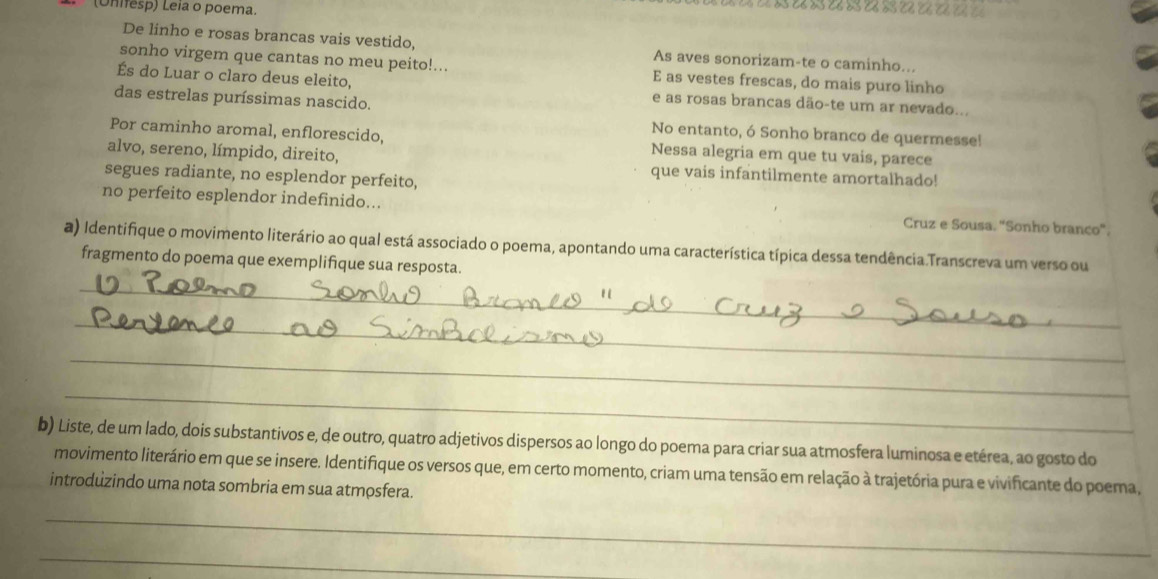 (Unifesp) Leia o poema.
De linho e rosas brancas vais vestido,
sonho virgem que cantas no meu peito!...
És do Luar o claro deus eleito,
das estrelas puríssimas nascido.
Por caminho aromal, enflorescido,
alvo, sereno, límpido, direito,
segues radiante, no esplendor perfeito,
no perfeito esplendor indefinido...
As aves sonorizam-te o caminho...
E as vestes frescas, do mais puro linho
e as rosas brancas dão-te um ar nevado...
No entanto, ó Sonho branco de quermesse!
Nessa alegria em que tu vais, parece
que vais infantilmente amortalhado!
Cruz e Sousa. "Sonho branco".
a) Identifique o movimento literário ao qual está associado o poema, apontando uma característica típica dessa tendência.Transcreva um verso ou
fragmento do poema que exemplifique sua resposta.
O Poema Sonho Branco" de Cruz e Sousa.
Pertence ao Simbolismo
b) Liste, de um lado, dois substantivos e, de outro, quatro adjetivos dispersos ao longo do poema para criar sua atmosfera luminosa e etérea, ao gosto do
movimento literário em que se insere. Identifique os versos que, em certo momento, criam uma tensão em relação à trajetória pura e vivificante do poema,
introduzindo uma nota sombria em sua atmosfera.